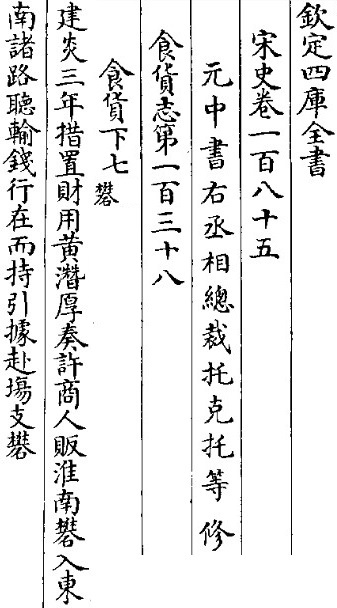 欽定四庫全書
宋史卷一百八十五
元中書右丞相總裁托克托等修
食貨志第一百三十八
食貨下七礬
建炎三年措置財用黄潛厚奏許商人販淮南礬入東
南諸路聽輸錢行在而持引據赴塲支礬